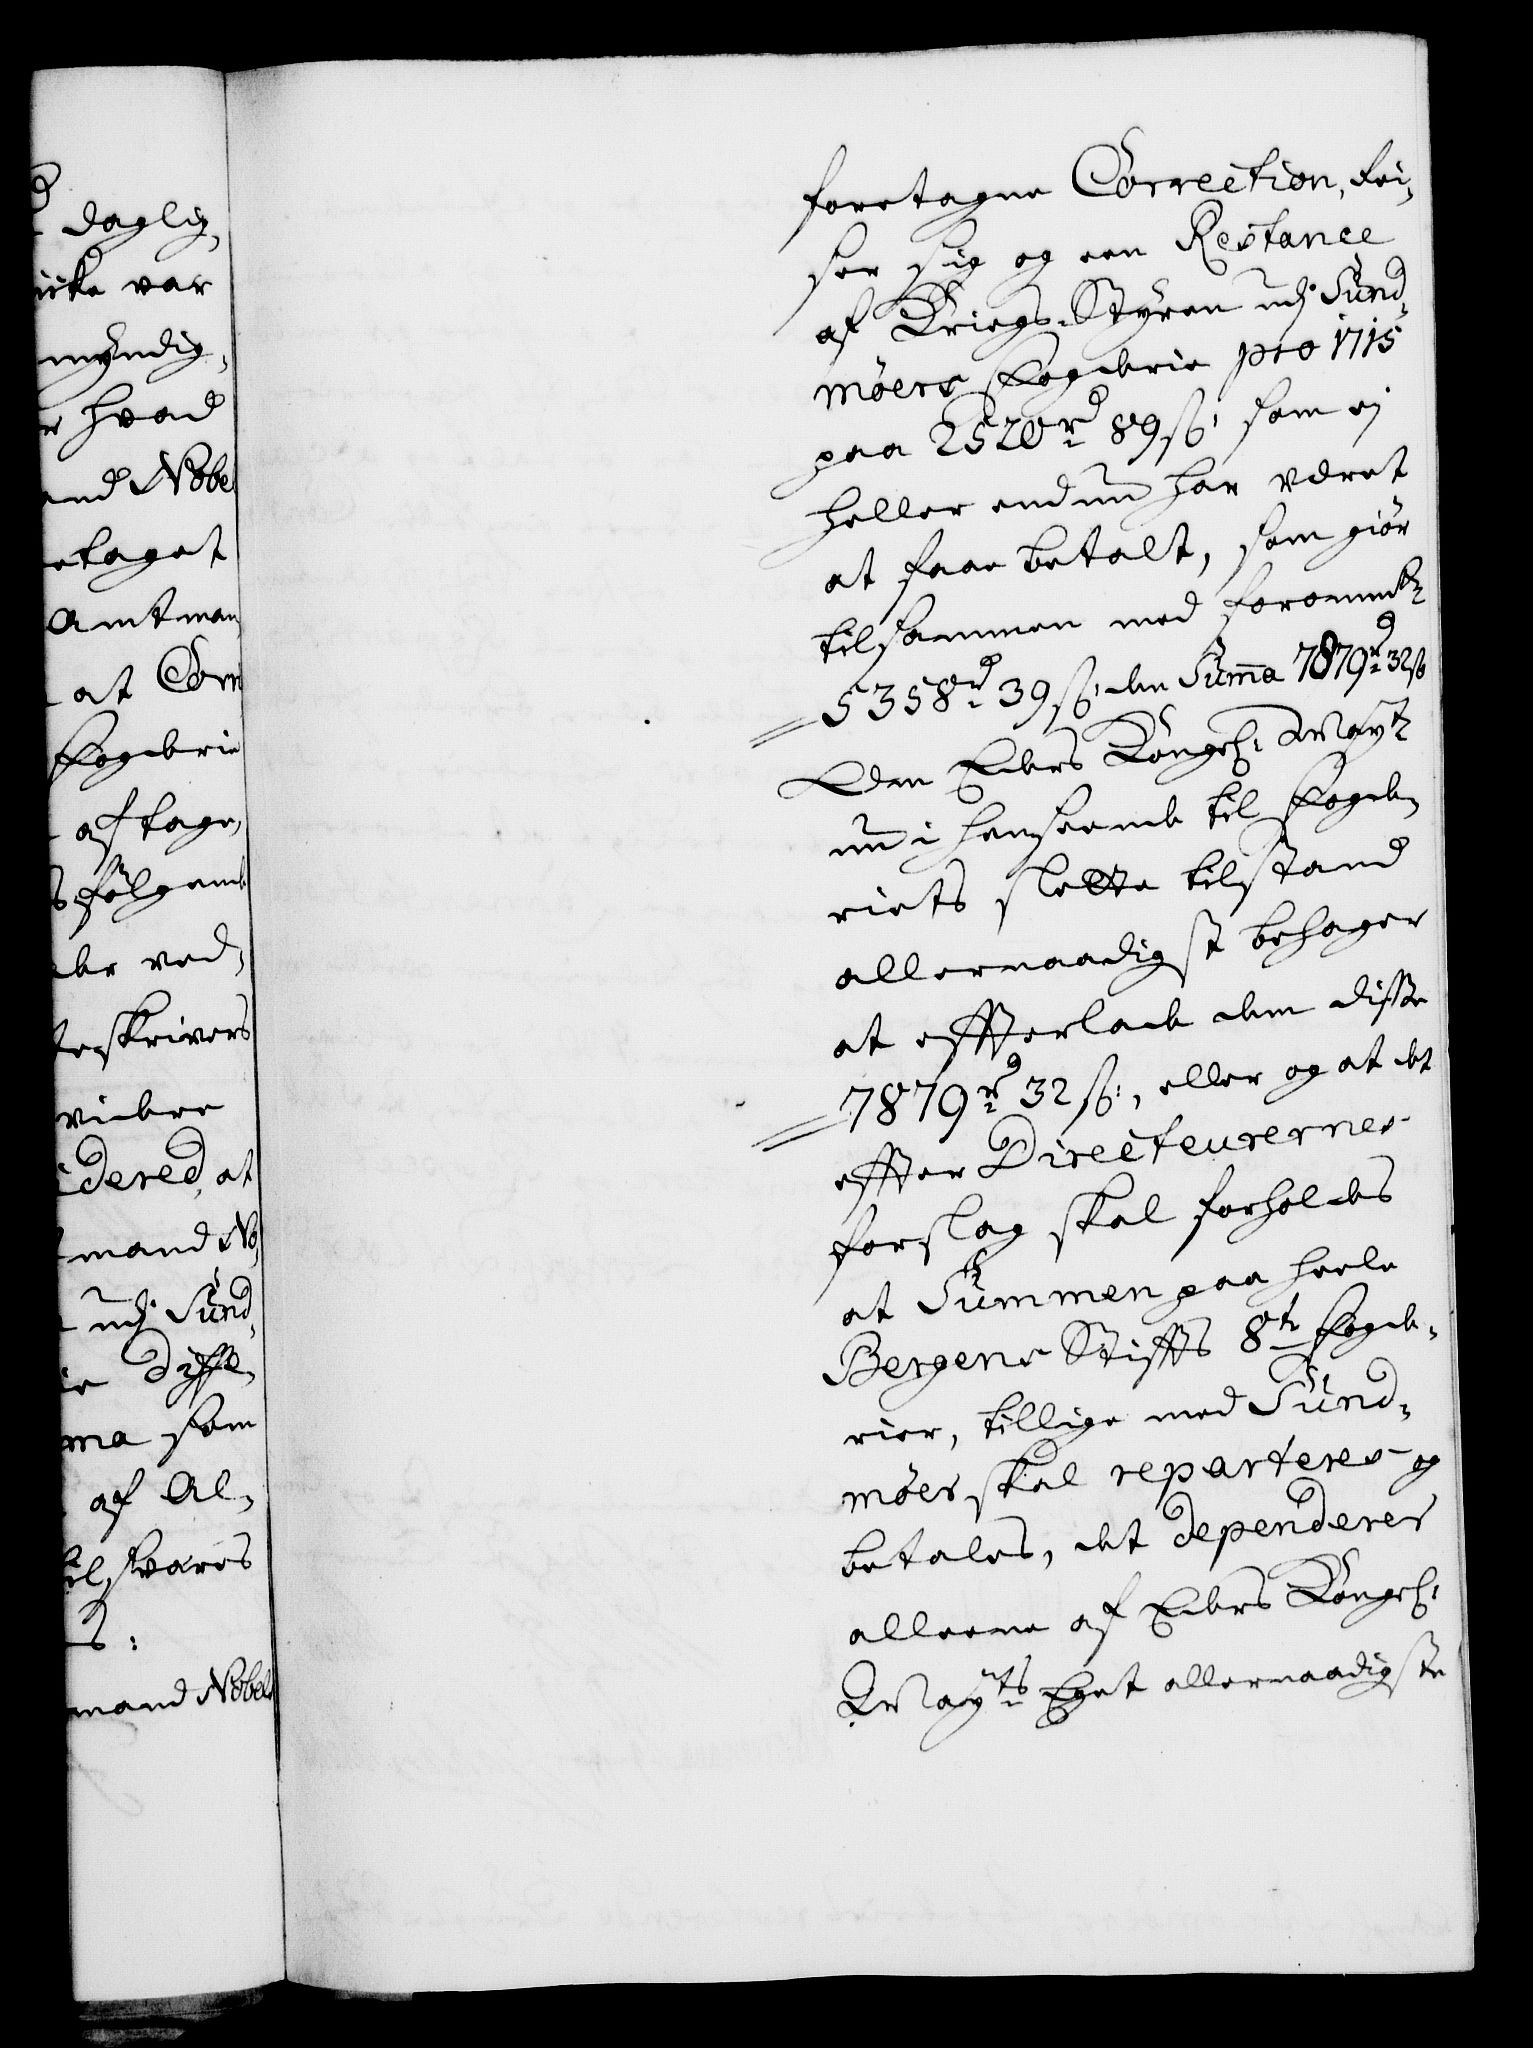 daglig,
icke var
myndig,
r hvad
and Nobel
etaget
Amtman
at Corr
Fogderie
aftage,
s følgende
der ved,
teskrivers
videre
idered, at
mand No,
udj Sund,
ie diffe,
ma som
af Al,
til, svares
s:
mand Nobel
foretagne Correction, Rei,
ser sig og een Restance
af Krigs-Styren udj Sund,
møers Fogderie pro 1715
paa 2520 rd 89 ß: som ej
heller endnu har været
at faae betalt, som giør
tilsammen med forommte
5358 rd 39 ß: den Suma 7879 rd 32 ß
Om Eders Kongel: Mayt
nu i henseende til Fogde,
riets slette tilstand
allernaadigst behager
at efterlade dem disse
7879 rd 32 ß:, eller og at det
efter Directeurernes
forslag skal forholdes
at Summen paa heele
Bergens Stifts 8te Fogde,
rier, tillige med Sund,
møer skal reparteres og
betales, det dependerer
alleene af Eders Kongel:
Mayts Eget allernaadigste